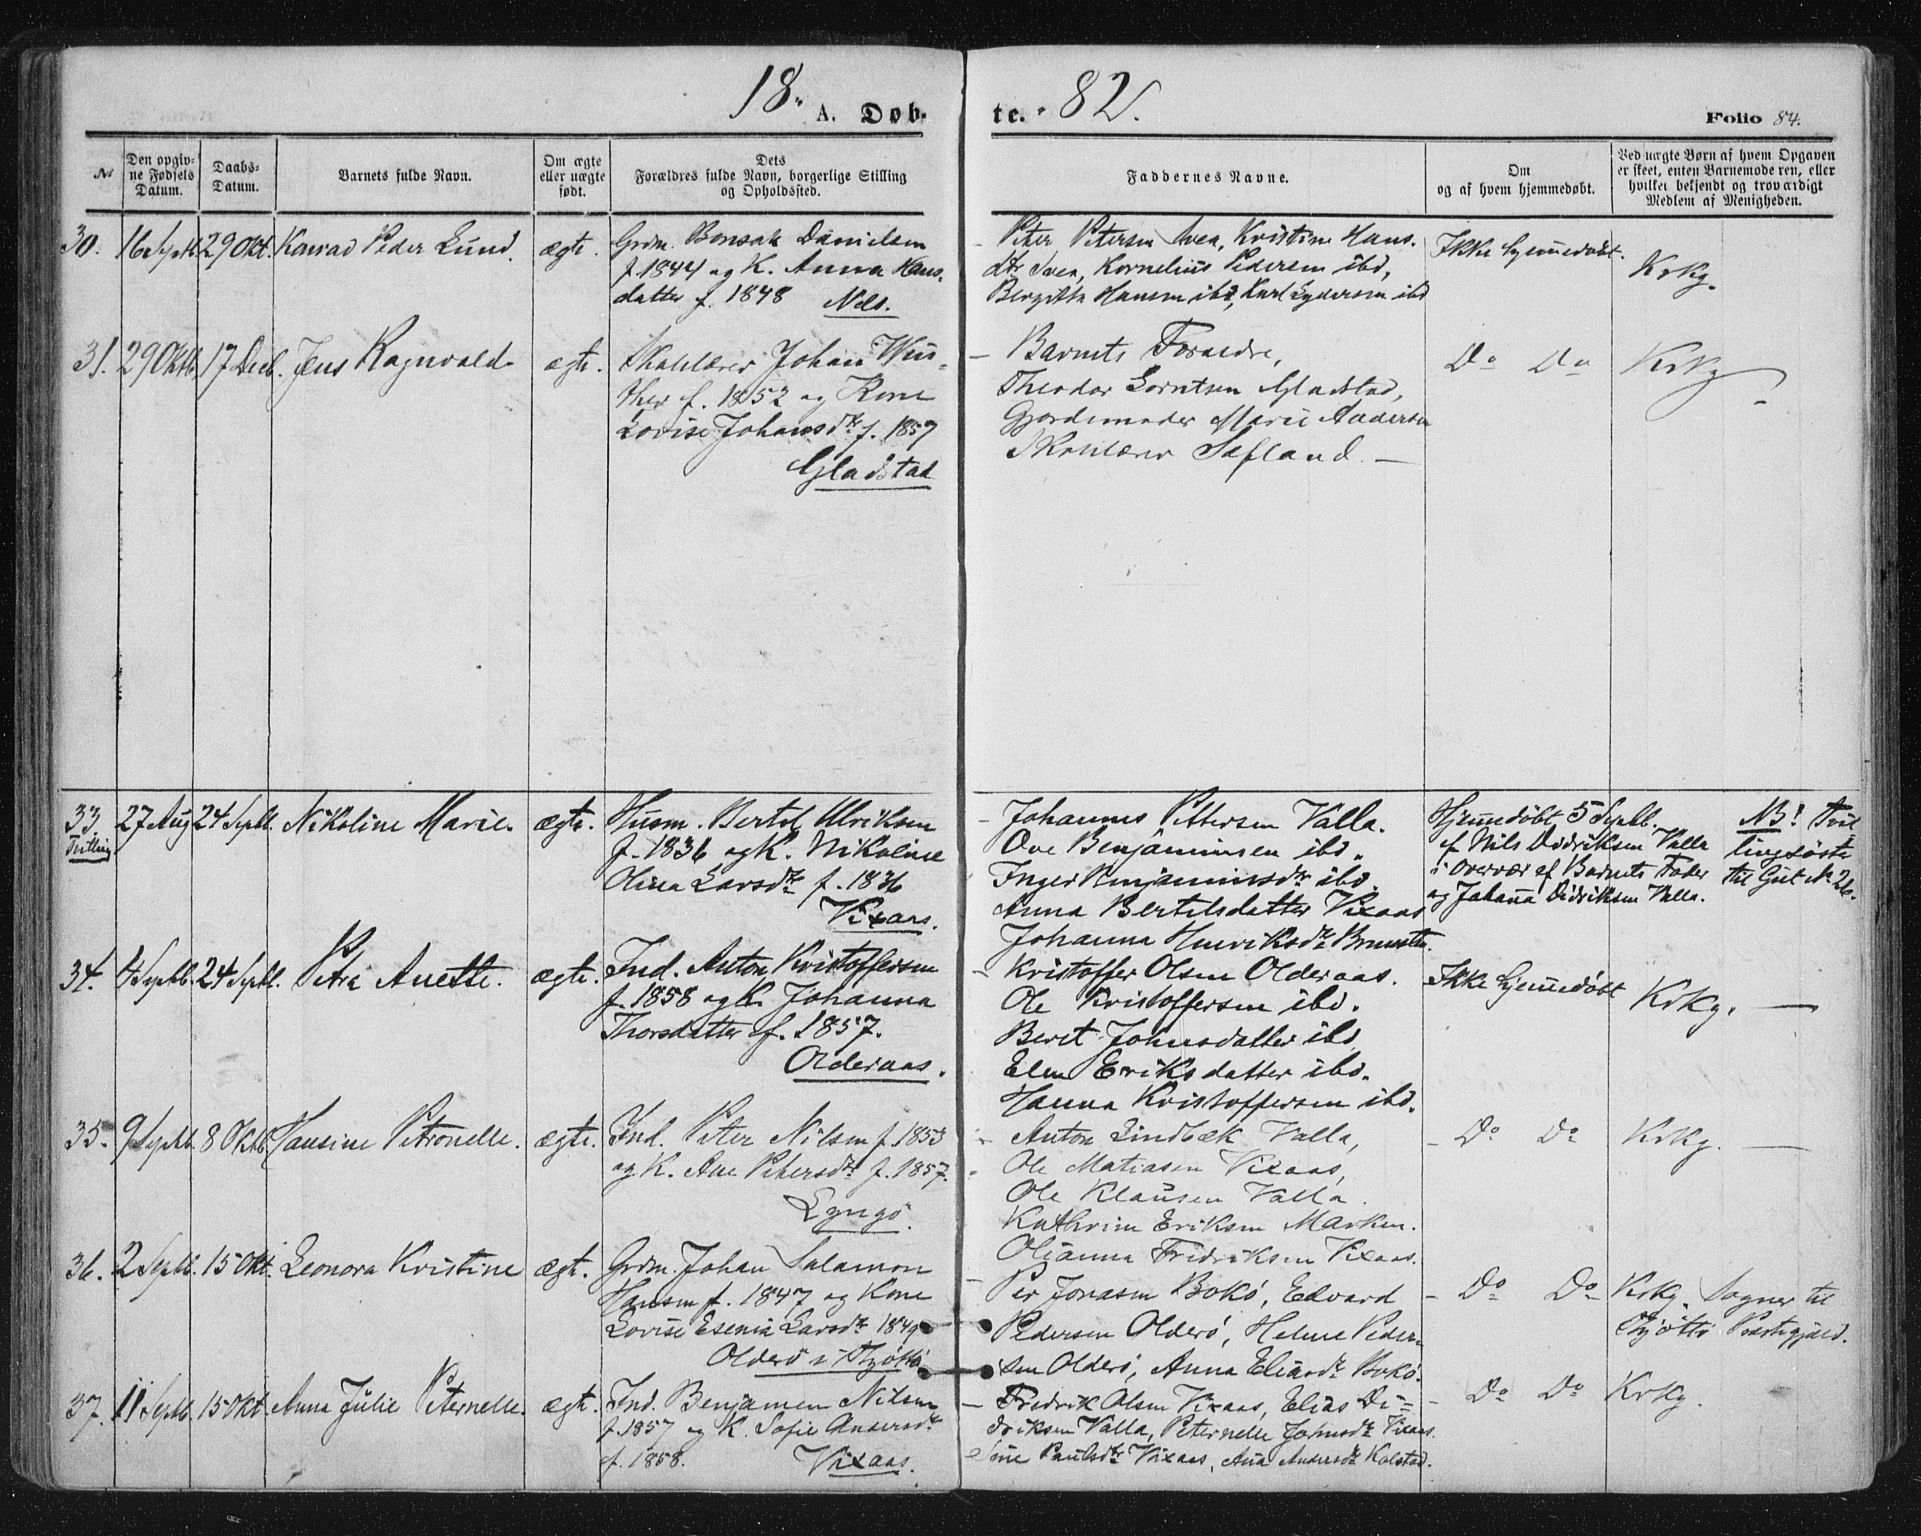 18 A. Døb-
te. 82. Folio 84.
№
Den opgiv-
ne Fødsels
Datum.
Daabs-
Datum.
Barnets fulde Navn.
Om ægte
eller uægte
født.
Dets
Forældres fulde Navn, borgerlige Stilling
og Opholdssted.
Faddernes Navne.
Om
og af hvem hjemmedøbt.
Ved uægte Børn af hvem Opgaven
er skeet, enten Barnemoderen, eller
hvilket bekjendt og troværdigt
Medlem af Menigheden.
30. 16 Septb 29 Okt. Konrad Peder Lund. ægte.
Grdm. Bonsak Danielsen
f. 1844 og K. Anna Hans-
datter f. 1848 Nds.
Peter Petersen Svea, Kristine Hans-
dtr Svea, Kornelius Pedersen ibd,
Bergitta Hansen ibd, Karl Lydersen ibd
Ikke hjemmedøbt.
Krkg.
31. 29 Oktb. 17 Decb. Jens Ragnvald ægte.
Skolelærer Johan
f. 1852 og Kone
Lovise Johansdtr f. 1857
Gladstad
Barnets Forældre,
Theodor Lorntsen Gladstad,
Gjordemoder Marie Andersen
Skolelærer
Do Do Krkg
33. 27 Aug 24 Septb. Nikoline Marie. ægte.
Tvilling
Husm. Bertil Ulriksen
f. 1836 og K. Nikoline
Olina Larsdtr f. 1836
Vixaas.
Johannes Pettersen Valla.
Ove Benjaminsen ibd.
Inger Benjaminsdtr ibd.
Anna Bertilsdatter Vixaas
Johanna Henriksdtr
Hjemmedøbt 5 Septb.
af Nils Didriksen Valla
i Overvær af Barnets Fader
og Johana Didriksen Valla.
NB! Tvil
lingsøster
til Gut N. 26.
34. 4 Septb. 24 Septb. Petra Anette. ægte.
Ind. Anton Kristoffersen
f. 1858 og K. Johanna
Thorsdatter f. 1857.
Olderaas.
Kristoffer Olsen Olderaas.
Ole Kristoffersen ibd.
Berit Johnsdatter ibd
Elen Eriksdatter ibd.
Hanna Kristoffersen ibd.
Ikke hjemmedøbt Krkg.
35. 9 Septb. 8 Oktb. Hansine Petronelle. ægte.
Ind. Peter Nilsen f. 1853
og K. Ane Petersdtr f. 1857.
Lyngø.
Anton Lindbæk Valla,
Ole Matiasen Vixaas,
Ole Klausen Valla.
Kathrine Eriksen Marken.
Oljanna Fredriksen Vixaas.
Do Do Krkg.
36. 2 Septb. 15 Okt. Leonora Kristine ægte.
Grdm. Johan Salamon
Hansen f. 1847 og Kone
Lovise Esenia Larsdtr 1849
Olderø i Tjøttø
Per Jonasen Bokø, Edvard
Pedersen Olderø, Helene Peder-
sen Olderø, Anna Eliasdtr Bokø.
Do Do Krkg. Sogner til
Tjøttø Præstegjæld.
37. 11 Septb. 15 Okt. Anna Julie Peternelle. ægte.
Ind. Benjamen Nilsen
f. 1857 og K. Sofie Andersdtr
f. 1858. Vixaas.
Fredrik Olsen Vixaas, Elias Di-
driksen Valla, Peternelle Johnsdtr Vixaas.
Paulsdtr Vixaas, Ana Andersdtr Kolstad.
Do Do Krkg.